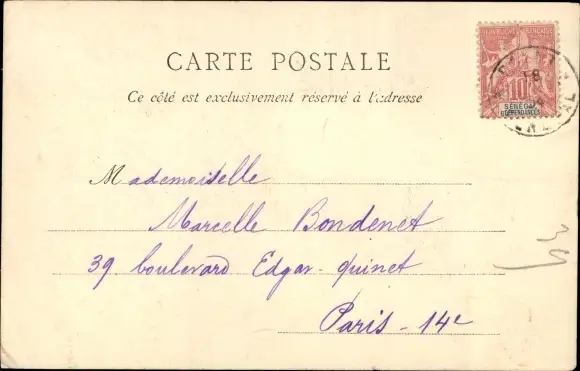 CARTE POSTALE
Ce côté est exclusivement réservé à l'adresse
RÉPUBLIQUE FRANÇAISE
10
SÉNÉGAL
DÉPENDANCES
18
Mademoiselle
Marcelle Bondenet
39 boulevard Edgar-quinet
Paris - 14e